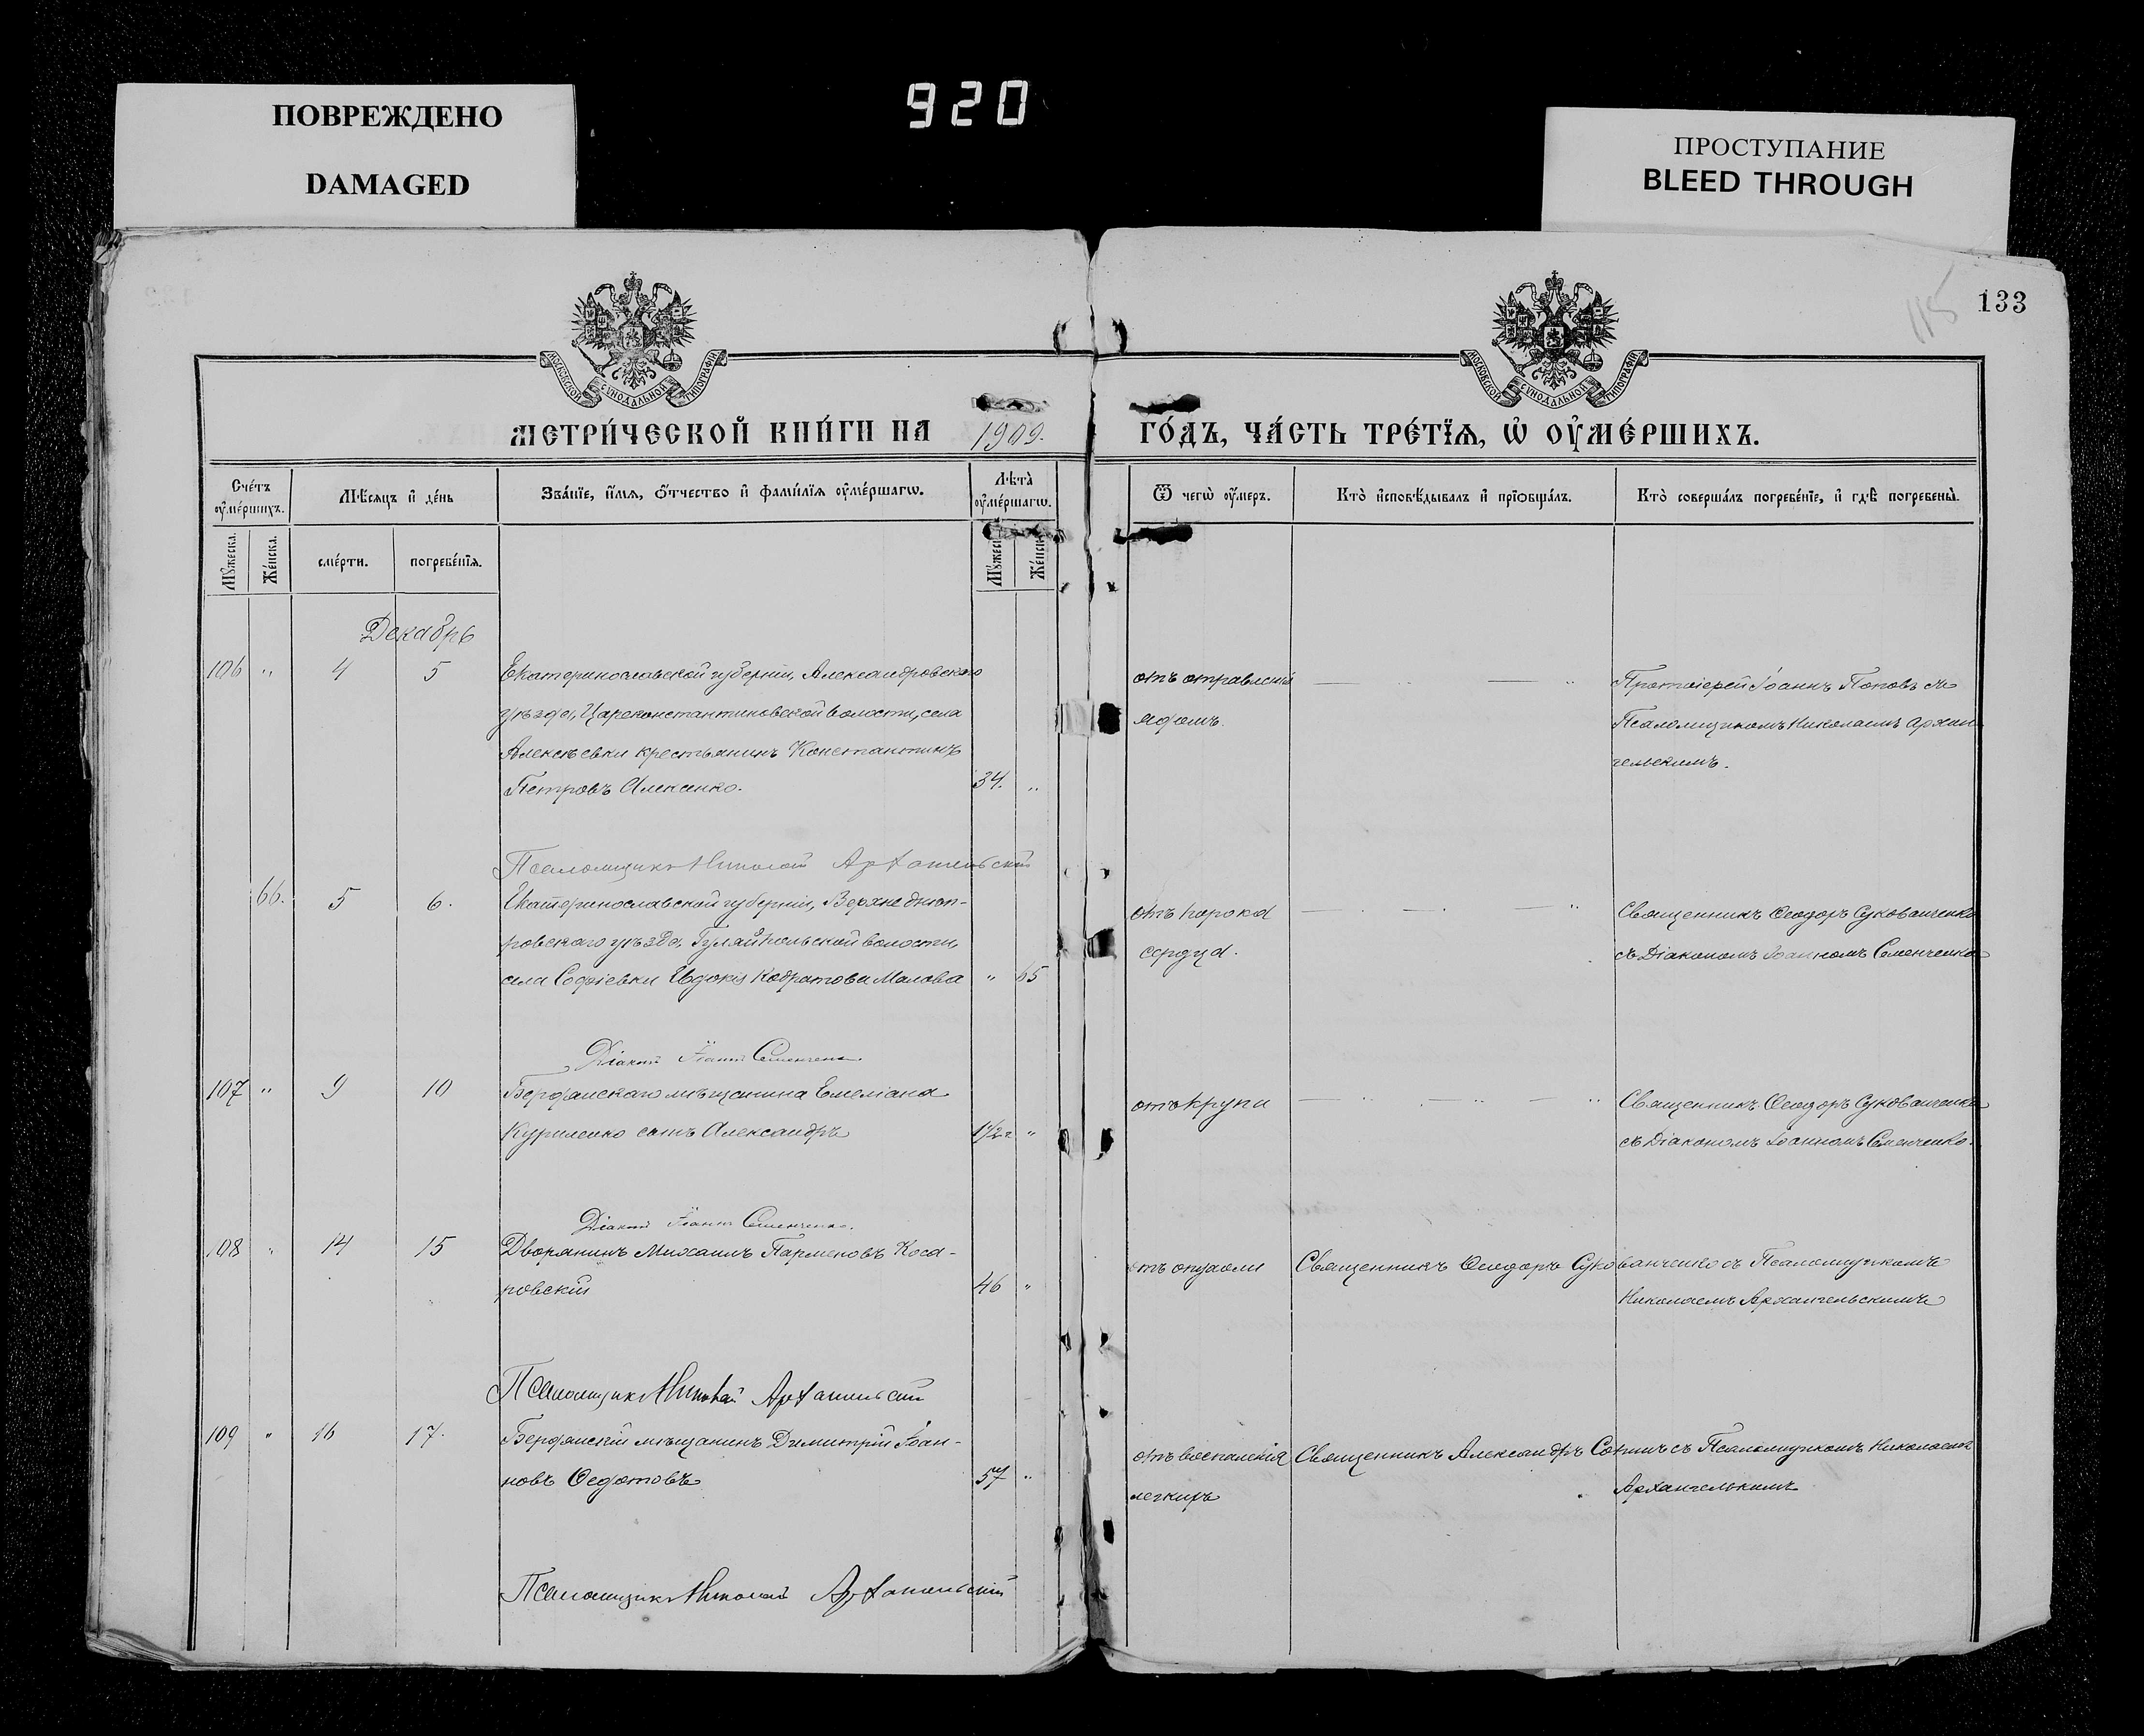 ПОВРЕЖДЕНО
DAMAGED
920
ПРОСТУПАНИЕ
BLEED THROUGH
115
133
МОСКОВСКОЙ СУНОДАЛЬНОЙ ТИПОГРАФІИ
МОСКОВСКОЙ СУНОДАЛЬНОЙ ТИПОГРАФІИ
МЕТРИ́ЧЕСКОЙ КНИ́ГИ НА 1909. ГО́ДЪ, ЧА́СТЬ ТРЕ́ТІѦ, Ѡ҆ ОУ҆МЕ́РШИХЪ.
Сче́тъ оу҆ме́ршихъ.
Мѣ́сяцъ и҆ де́нь
Зва́нїе, и҆́мѧ, ѻ҆́тчество и҆ фами́лїѧ оу҆ме́ршагѡ.
Лѣ́та оу҆ме́ршагѡ.
Ѿ чегѡ̀ оу҆́меръ.
Кто̀ и҆сповѣ́дывалъ и҆ прїѡбща́лъ.
Кто̀ соверша́лъ погребе́нїе, и҆ гдѣ̀ погребены̀.
Мꙋ́жеска.
Же́нска.
сме́рти.
погребе́нїѧ.
Мꙋ́жеск
Же́нска
Декабрь
106 " 4 5 Екатеринославской губерніи, Александровскаго
уѣзда, Цареконстантиновской волости, села
Алексѣевки крестьянинъ Константинъ
Петровъ Алексенко. 34. "
отъ отравленія
ядомъ.
Протоіерей Іоаннъ Поповъ съ
Псаломщикомъ Николаемъ Архан
гельскимъ.
Псаломщикъ Николай Архангельскій
66. 5 6. Екатеринославской губерніи, Верхнеднѣп-
ровскаго уѣзда, Гуляйпольской волости,
села Софіевки Евдокія Кодратова Малова " 65
отъ порока
сердца.
Священникъ Ѳеодоръ Сукованченко
съ Діакономъ Іоанномъ Семенченко
Діаконъ Іоаннъ Семенченко.
107 " 9 10 Бердянскаго мѣщанина Емеліана
Куриленко сынъ Александръ 1½ г "
отъ крупа
Священникъ Ѳеодоръ Сукованченко
съ Діакономъ Іоанномъ Семенченко.
Діаконъ Іоаннъ Семенченко.
108 " 14 15 Дворянинъ Михаилъ Парменовъ Коса-
ровскій 46 "
отъ опухоли Священникъ Ѳеодоръ Сукованченко съ Псаломщикомъ
Николаемъ Архангельскимъ
Псаломщикъ Николай Архангельскій
109 " 16 17. Бердянскій мѣщанинъ Димитрій Іоан-
новъ Ѳедотовъ 57 "
отъ воспаленія Священникъ Александръ съ Псаломщикомъ Николаемъ
легкихъ Архангелькимъ
Псаломщикъ Николай Архангельскій